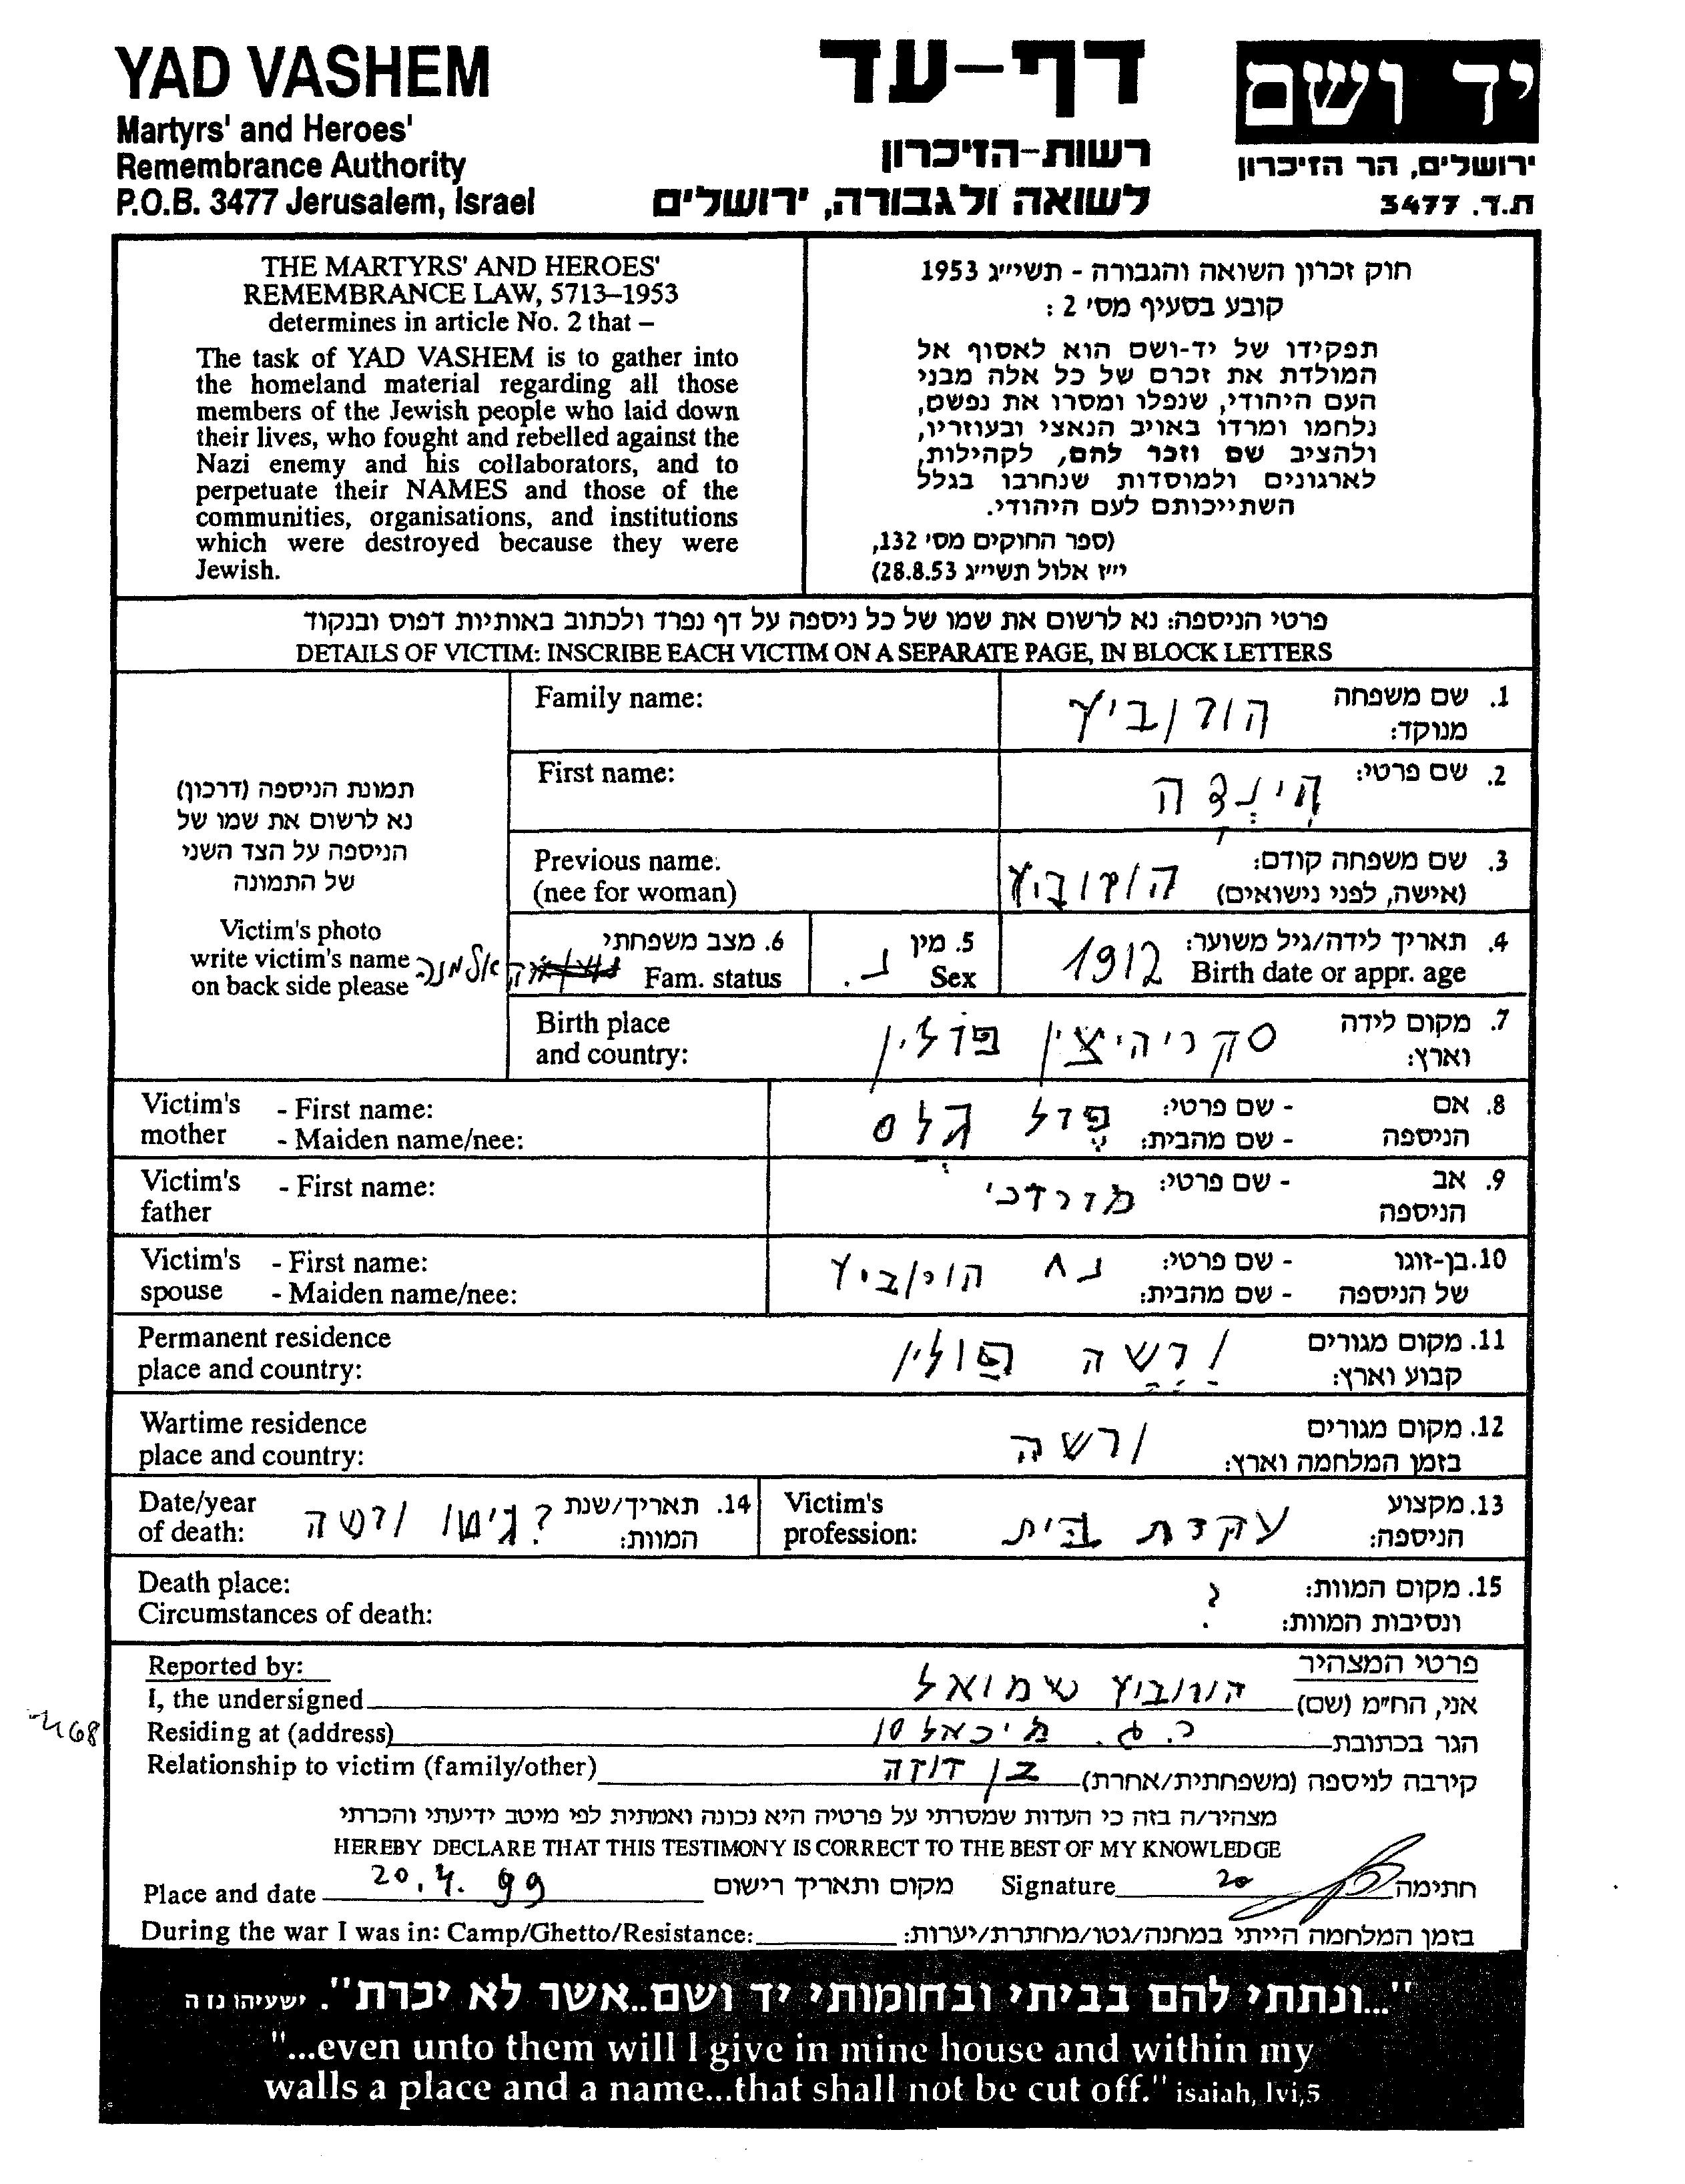 YAD VASHEM
Martyrs' and Heroes'
Remembrance Authority
P.O.B. 3477 Jerusalem, Israel
דף-עד
רשות-הזיכרון
לשואה ולגבורה, ירושלים
יד ושם
ירושלים, הר הזיכרון
ת.ד. 3477
THE MARTYRS' AND HEROES'
REMEMBRANCE LAW, 5713–1953
determines in article No. 2 that –
The task of YAD VASHEM is to gather into
the homeland material regarding all those
members of the Jewish people who laid down
their lives, who fought and rebelled against the
Nazi enemy and his collaborators, and to
perpetuate their NAMES and those of the
communities, organisations, and institutions
which were destroyed because they were
Jewish.
חוק זכרון השואה והגבורה - תשי״ג 1953
קובע בסעיף מס׳ 2 :
תפקידו של יד-ושם הוא לאסוף אל
המולדת את זכרם של כל אלה מבני
העם היהודי, שנפלו ומסרו את נפשם,
נלחמו ומרדו באויב הנאצי ובעוזריו,
ולהציב שם וזכר להם, לקהילות,
לארגונים ולמוסדות שנחרבו בגלל
השתייכותם לעם היהודי.
(ספר החוקים מס׳ 132,
י״ז אלול תשי״ג 28.8.53)
פרטי הניספה: נא לרשום את שמו של כל ניספה על דף נפרד ולכתוב באותיות דפוס ובנקוד
DETAILS OF VICTIM: INSCRIBE EACH VICTIM ON A SEPARATE PAGE, IN BLOCK LETTERS
תמונת הניספה (דרכון)
נא לרשום את שמו של
הניספה על הצד השני
של התמונה
Victim's photo
write victim's name
on back side please
1. שם משפחה
מנוקד:
הורוביץ
Family name:
2. שם פרטי:
הינדה
First name:
3. שם משפחה קודם:
(אישה, לפני נישואים)
הורוביץ
Previous name.
(nee for woman)
4. תאריך לידה/גיל משוער:
Birth date or appr. age
1912
5. מין
Sex
נ.
6. מצב משפחתי
Fam. status
אלמנה
7. מקום לידה
וארץ:
פולין
Birth place
and country:
8. אם
הניספה
- שם פרטי:
- שם מהבית:
פרל
Victim's
mother
- First name:
- Maiden name/nee:
9. אב
הניספה
- שם פרטי:
מרדכי
Victim's
father
- First name:
10. בן-זוגו
של הניספה
- שם פרטי:
- שם מהבית:
הורוביץ
Victim's
spouse
- First name:
- Maiden name/nee:
11. מקום מגורים
קבוע וארץ:
ורשה פולין
Permanent residence
place and country:
12. מקום מגורים
בזמן המלחמה וארץ:
ורשה
Wartime residence
place and country:
13. מקצוע
הניספה:
עקרת בית
Victim's
profession:
14. תאריך/שנת
המוות:
? גיטו ורשה
Date/year
of death:
15. מקום המוות:
ונסיבות המוות:
?
Death place:
Circumstances of death:
פרטי המצהיר
Reported by:
אני, הח״מ (שם) הורוביץ שמואל
I, the undersigned
הגר בכתובת מיכאל 10
Residing at (address)
קירבה לניספה (משפחתית/אחרת) בן דודה
Relationship to victim (family/other)
מצהיר/ה בזה כי העדות שמסרתי על פרטיה היא נכונה ואמתית לפי מיטב ידיעתי והכרתי
HEREBY DECLARE THAT THIS TESTIMONY IS CORRECT TO THE BEST OF MY KNOWLEDGE
Place and date 20.4.99 מקום ותאריך רישום Signature חתימה
During the war I was in: Camp/Ghetto/Resistance: בזמן המלחמה הייתי במחנה/גטו/מחתרת/יערות:
"...ונתתי להם בביתי ובחומותי יד ושם..אשר לא יכרת". ישעיהו נו ה
"...even unto them will I give in mine house and within my
walls a place and a name...that shall not be cut off." isaiah, lvi,5